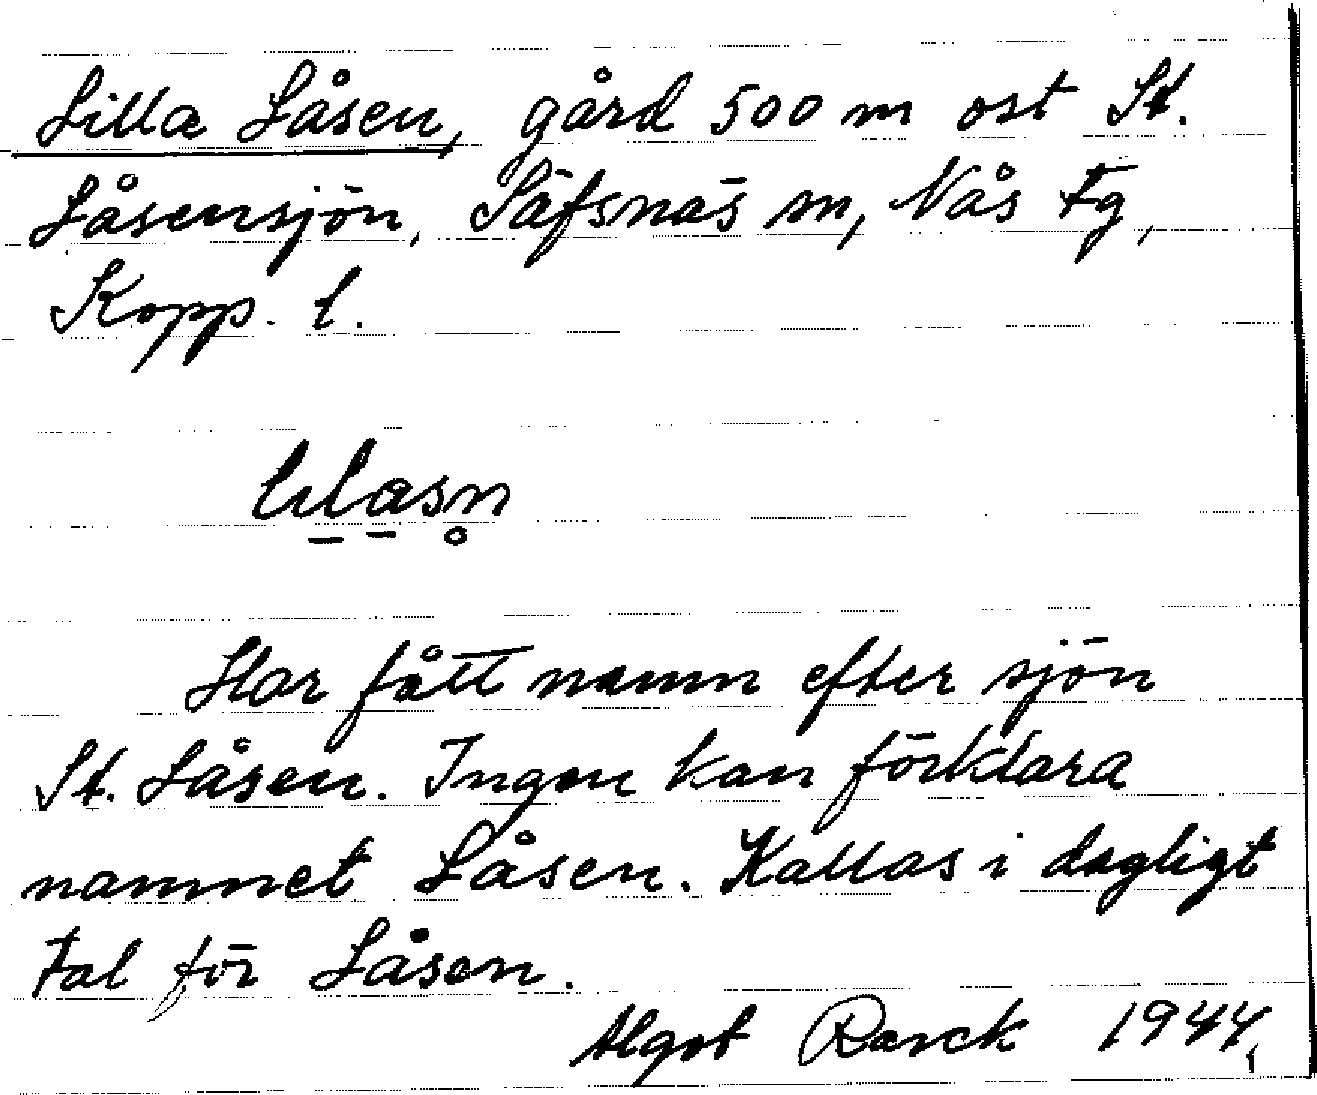 Lilla Låsen, gård 500 m ost St.
Låsensjön, Säfsnäs sn, Nås tg,
Kopp. l.
lılasn
Har fått namn efter sjön
St. Låsen. Ingen kan förklara
namnet Låsen. Kallas i dagligt
tal för Låsen.
Algot Rarck 1944.